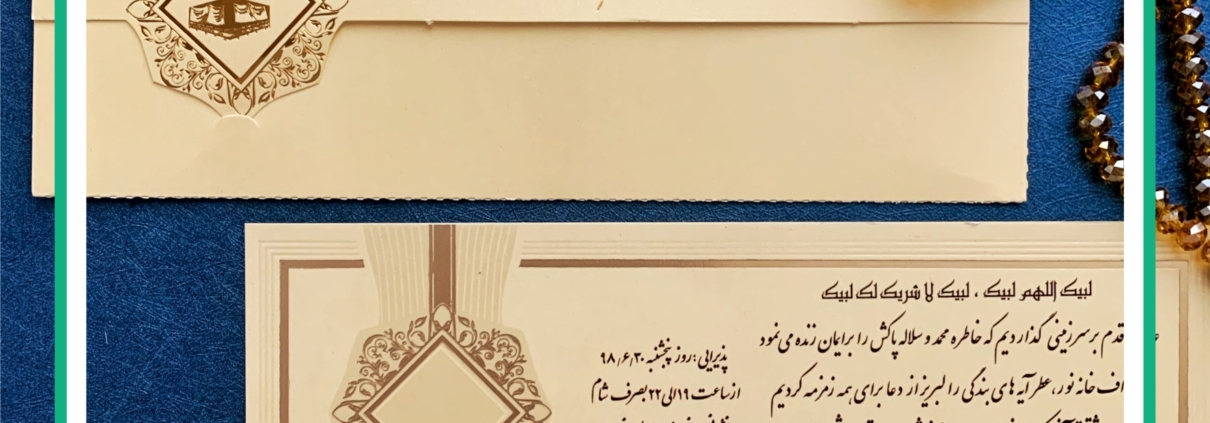 لبیک اللهم لبیک ، لبیک لا شریک لک لبیک
قدم بر سرزمینی گذاردیم که خاطره محمد و سلاله پاکش را برایمان زنده می نمود
خانه نور، عطر آیه های بندگی را لبریز از دعا برای همه زمزمه کردیم
پذیرایی : روز پنجشنبه ۹۸٫۶٫۳۰
از ساعت ۱۹ الی ۲۲ بصرف شام